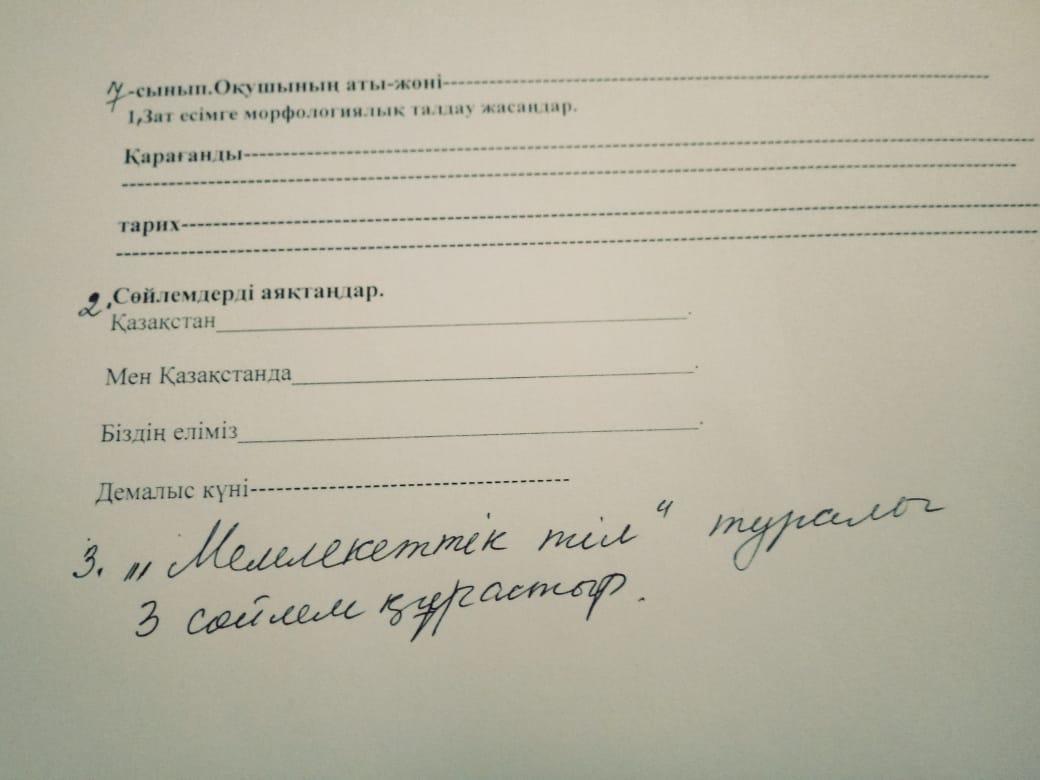 7-сынып.Оқушының аты-жөні---------------------------------------------------------------
1,Зат есімге морфологиялық талдау жасаңдар.
Қарағанды-----------------------------------------------------------------------------------------
----------------------------------------------------------------------------------------------------
тарих-----------------------------------------------------------------------------------------------
-------------------------------------------------------------------------------------------------------
2.Сөйлемдерді аяқтаңдар.
Қазақстан______________________________________.
Мен Қазақстанда________________________________.
Біздің еліміз_____________________________________.
Демалыс күні--------------------------------------
3. „Мемлекеттік тіл“ туралы
3 сөйлем құрастыр.